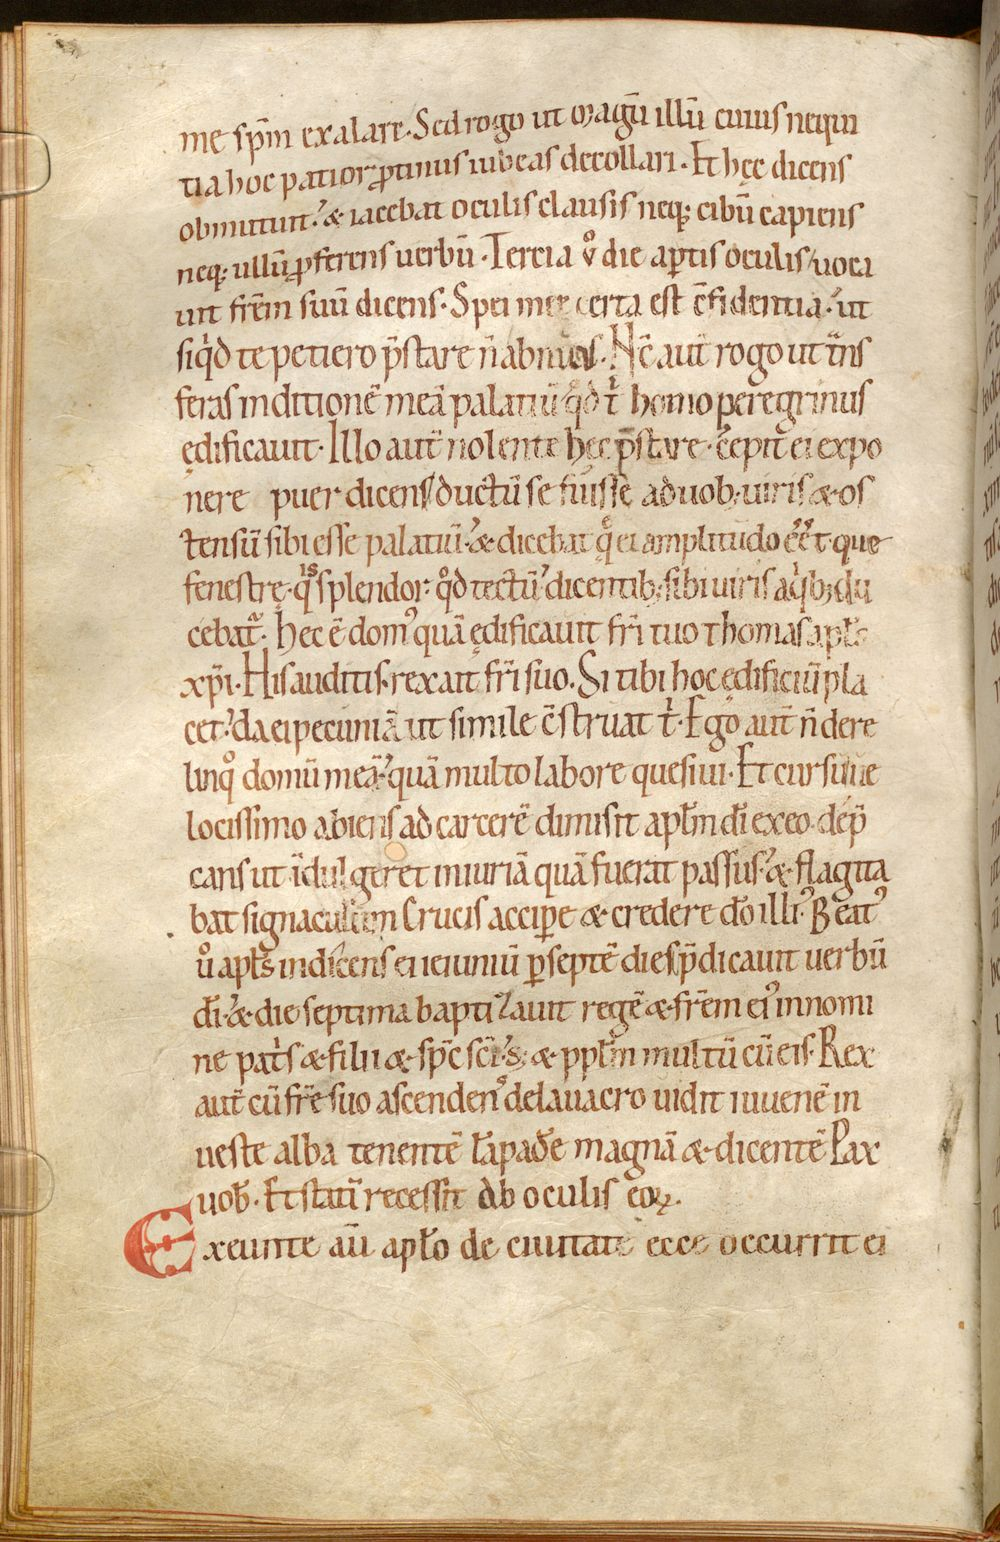 me sp̄m exalare. Sed rogo ut magū illū cuius nequi
tia hoc patior ꝓtinus iubeas decollari. Et hęc dicens
obmutuit. & iacebat oculis clausis neq; cibū capiens
neq; ullū ꝓferens uerbū. Tercia ů die aꝑtis oculis uoca
uit fr̄em suū dicens. Spei mee certa est c̄fidentia. ut
siqͥd te petiero p̄stare ñ abnuas. Nc̄ aut̄ rogo ut tͣns
feras in ditionē meā palatiū qͦd tͥ homo peregrinus
ędificauit. Illo aut̄ nolente hęc p̄stare. c̄epit ei expo
nere puer dicens ductū se fuisse a duob; uiris & os
tensū sibi esse palatiū. & dicebat qͣ ei amplitudo eēt. que
fenestrę. qͥs splendor. qͦd tectū. dicentib; sibi uiris a qͥb; du
cebat᷑. Hec ē dom᷒ quā ędificauit fr̄i tuo thomas apƚs
xp̄i. His auditis. rex ait fr̄i suo. Si tibi hoc ędificiū pla
cet. da ei pecuniā ut simile c̄struat tͥ. Ego aut̄ ñ dere
linqͦ domū meā. quā multo labore quesiui. Et cursu ue
locissimo abiens ad carcerē dimisit apƚm dī ex eo. dep̄
cans ut īdulgeret iniuriā quā fuerat passus. & flagita
bat signaculum crucis accipere & credere dō illi᷒. Beat᷒
ů apƚs indicens ei ieiuniū ꝑ septē dies p̄dicauit uerbū
dī. & die septima baptizauit regē & fr̄em ei᷒ in nomi
ne patͥs & filii & sp̄c sc̄i. s; & ppƚm multū cū eis. Rex
aut̄ cū fr̄e suo ascendens de lauacro uidit iuuenē in
ueste alba tenentē lāpadē magnā & dicentē Pax
uob̄. Et statī recessit ab oculis eoꝝ.
Exeunte aū apƚo de ciuitate ecce occurrit ei